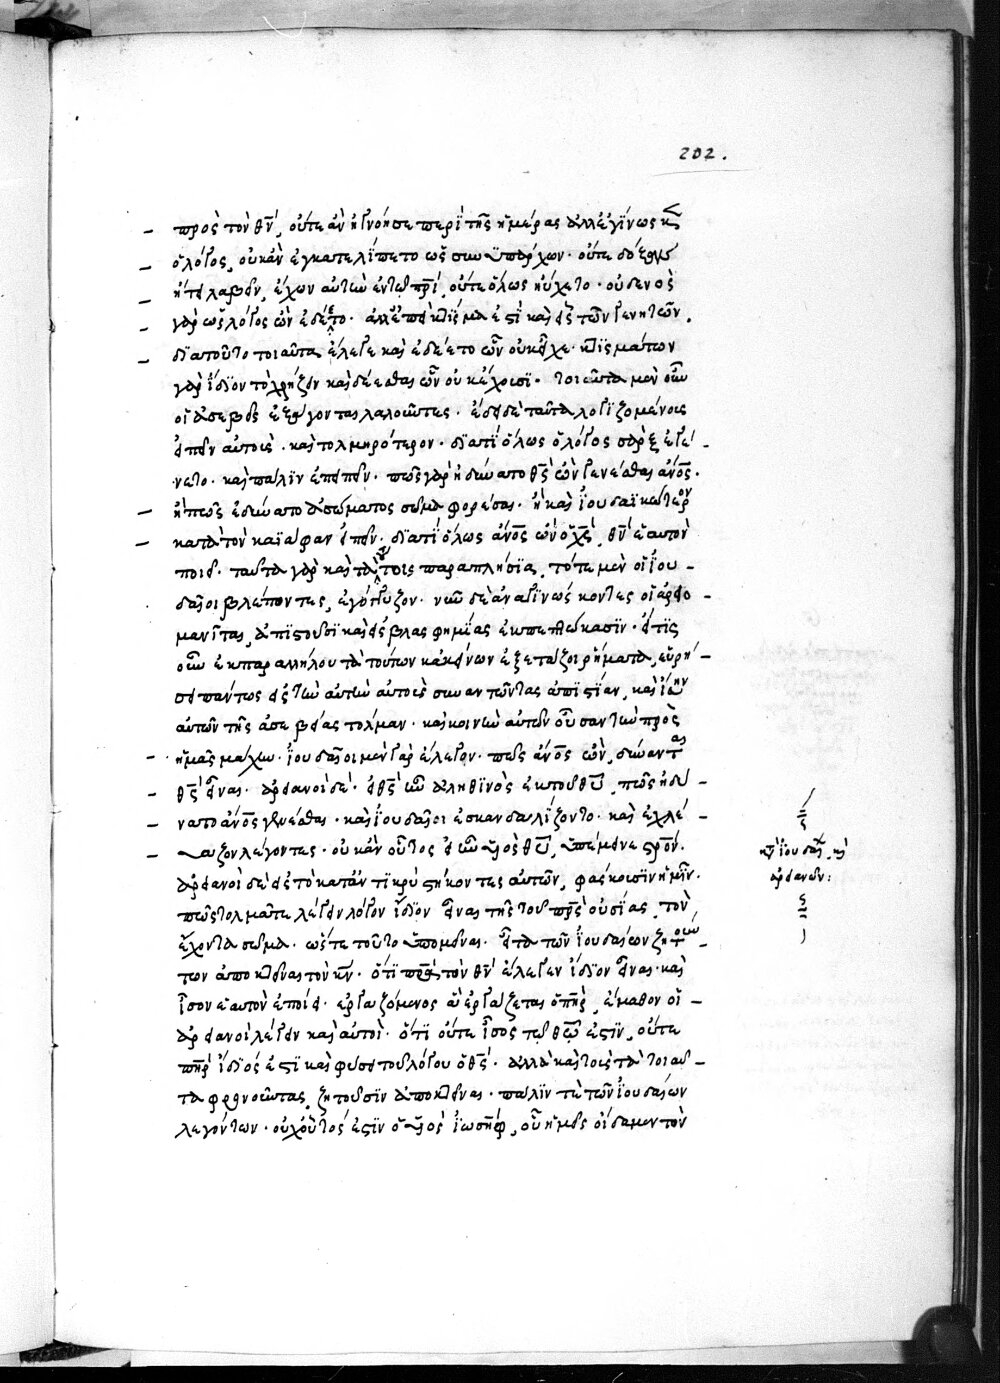 202.
πρὸς τὸν θν̄, οὔτε ἂν ἠγνόησε περὶ τῆς ἡμέρας ἀλλ' ἐγίνωσκεν
ὁ λόγος, οὐκ ἂν ἐγκατελίπετο ὡς συνϋπάρχων· οὔτε δόξαν
ᾔτει λαβεῖν, ἔχων αὐτὴν ἐν τῷ πρ̄ί, οὔτε ὅλως ηὔχετο· οὐδενὸς
γὰρ ὡς λόγος ὢν ἐδέετο· ἀλλ' ἐπεὶ κτίσμα ἐστὶ καὶ εἷς τῶν γενητῶν,
διὰ τοῦτο τοιαῦτα ἔλεγε καὶ ἐδέετο ὧν οὐκ εἶχε· κτισμάτων
γὰρ ἴδιον τὸ χρῄζειν καὶ δέεσθαι ὧν οὐκ ἔχουσι· τοιαῦτα μὲν οὖν
οἱ ἀσεβεῖς ἐφθέγονται λαλοῦντες· ἔδει δὲ ταῦτα λογιζομένους
εἰπεῖν αὐτοὺς· καὶ τολμηρότερον· διατί ὅλως ὁ λόγος σὰρξ ἐγέ-
νετο· καὶ πάλιν ἐπειπεῖν· πῶς γὰρ ἠδύνατο θς̄ ὢν γενέσθαι ἄνο̄ς·
ἢ πῶς ἐδύνατο ἀσώματος σῶμα φορέσαι· ἢ καὶ ἰουδαϊκώτερον
κατὰ τὸν καϊάφαν εἰπεῖν· διατί ὅλως ἄνο̄ς ὢν ὁ χς̄, θν̄ ἑαυτὸν
ποιεῖ· ταῦτα γὰρ καὶ τὰ τούτοις παραπλήσια, τότε μὲν οἱ ἰου-
δαῖοι βλέποντες, ἐγόγγυζον· νῦν δὲ ἀναγινώσκοντες οἱ ἀρειο-
μανῖται, ἀπιστοῦσι καὶ εἰς βλασφημίας ἐκπεπτώκασιν· εἴ τις
οὖν ἐκ παραλλήλου τὰ τούτων κἀκείνων ἐξετάζοι ῥήματα, εὑρή-
σει πάντως εἰς τὴν αὐτὴν αὐτοὺς συναντῶντας ἀπιστίαν, καὶ ἴσην
αὐτῶν τῆς ἀσεβείας τόλμαν· καὶ κοινὴν αὐτῶν οὖσαν τὴν πρὸς
ἡμᾶς μάχην· ἰουδαῖοι μὲν γὰρ ἔλεγον· πῶς ἄνο̄ς ὢν, δύναται
θς̄ εἶναι· ἀρειανοὶ δέ· εἰ θς̄ ἦν ἀληθινὸς ἐκ τοῦ θῡ, πῶς ἠδύ-
νατο ἄνο̄ς γενέσθαι· καὶ ἰουδαῖοι ἐσκανδαλίζοντο· καὶ ἐχλεύ-
αζον λέγοντες· οὐκ ἂν οὗτος εἰ ἦν υἱὸς θῡ, ὑπέμεινε στρ̄ον·
ἀρειανοὶ δὲ εἰς τὸ κατάντικρὺ στήκοντες αὐτῶν, φάσκουσιν ἡμῖν·
πῶς τολμᾶτε λέγειν λόγον ἴδιον εἶναι τῆς τοῦ πρ̄ς οὐσίας, τὸν
ἔχοντα σῶμα· ὥστε τοῦτο ὑπομεῖναι· εἶτα τῶν ἰουδαίων ζητούν-
των ἀποκτεῖναι τὸν κν̄· ὅτι πρ̄α τὸν θν̄ ἔλεγεν ἴδιον εἶναι· καὶ
ἴσον ἑαυτὸν ἐποίει· ἐργαζόμενος ἃ ἐργάζεται ὁ πη̄ρ, ἔμαθον οἱ
ἀρειανοὶ λέγειν καὶ αὐτοὶ· ὅτι οὔτε ἴσος τῷ θῶ̄ ἐστιν, οὔτε
πη̄ρ ἴδιός ἐστι καὶ φύσει τοῦ λόγου ὁ θς̄· ἀλλὰ καὶ τοὺς τὰ τοιαῦ-
τα φρονοῦντας, ζητοῦσιν ἀποκτεῖναι· πάλιν τὲ τῶν ἰουδαίων
λεγόντων· οὐχ οὗτός ἐστιν ὁ υἱὸς ἰωσὴφ, οὗ ἡμεῖς οἴδαμεν τὸν
ἰουδαί
ἀρειανῶν: